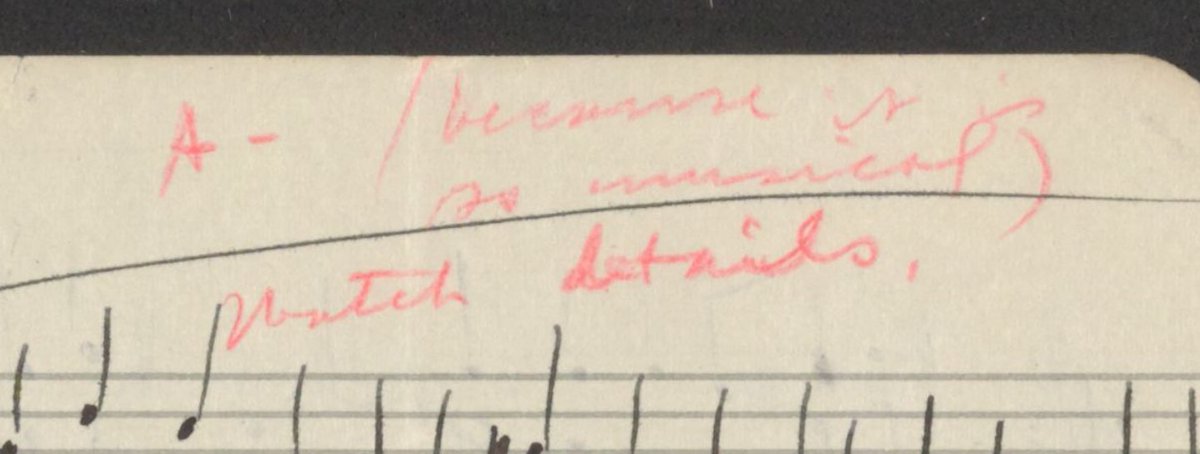 A - (because it is
so musical)
Watch details.